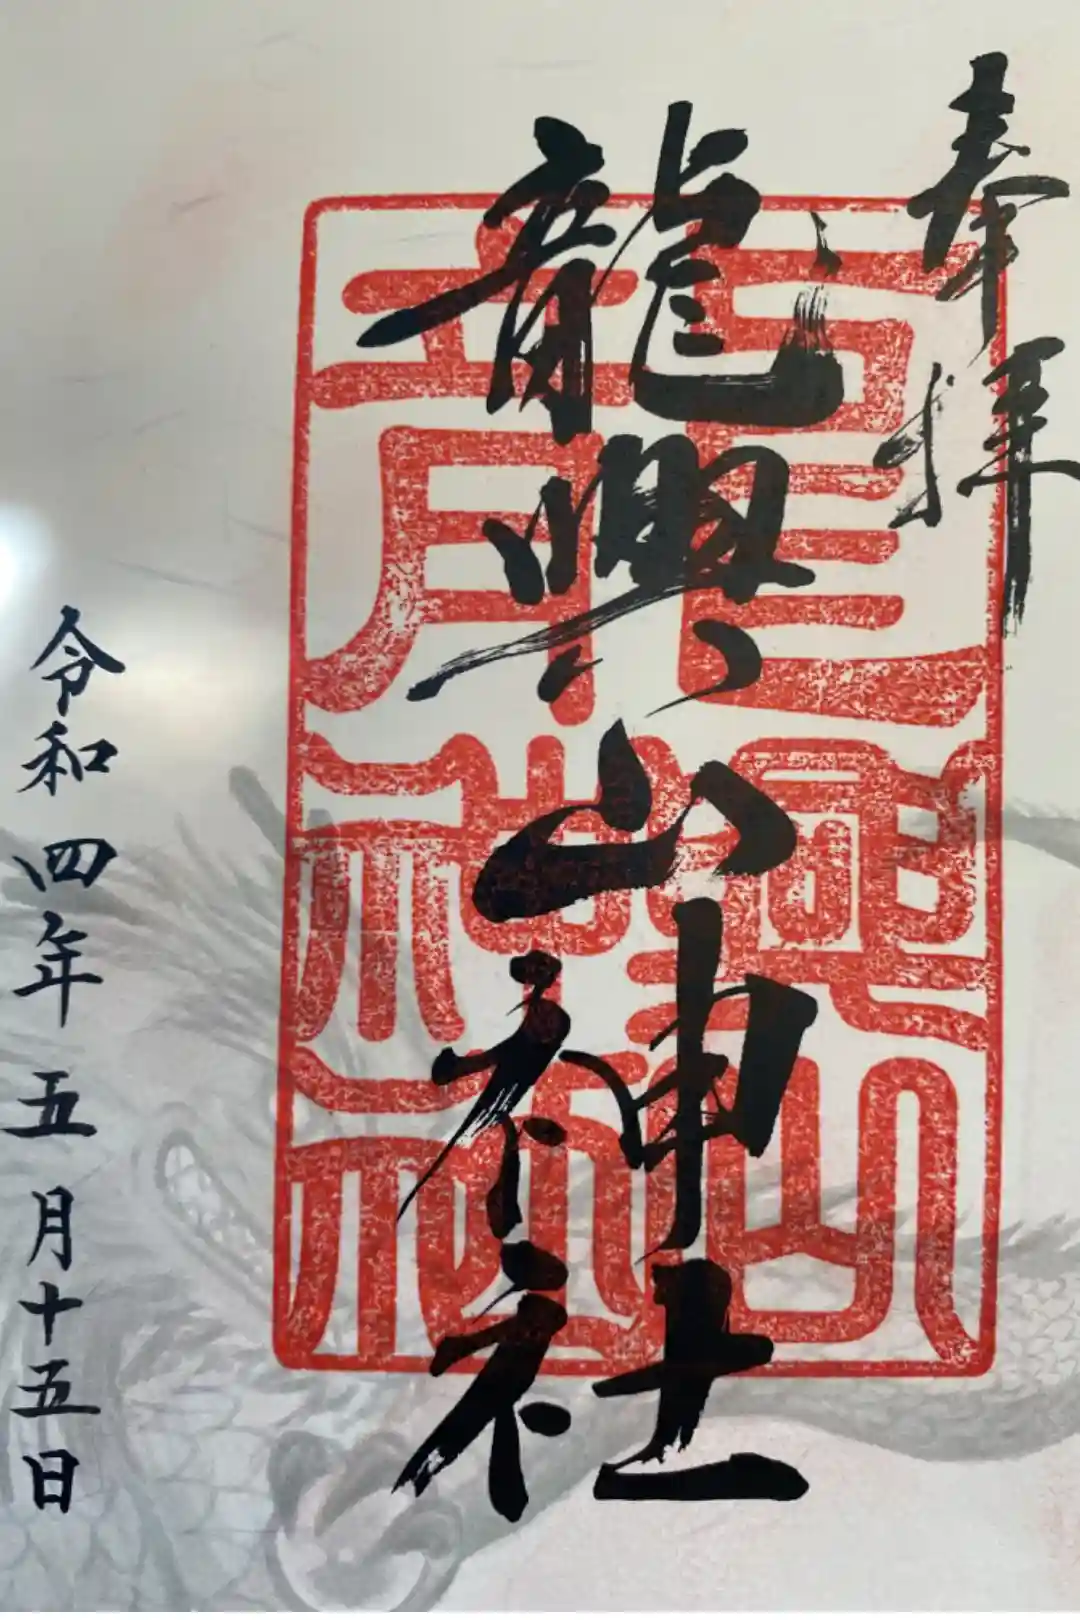 奉拝
龍興山神社
令和四年五月十五日
龍興山神社